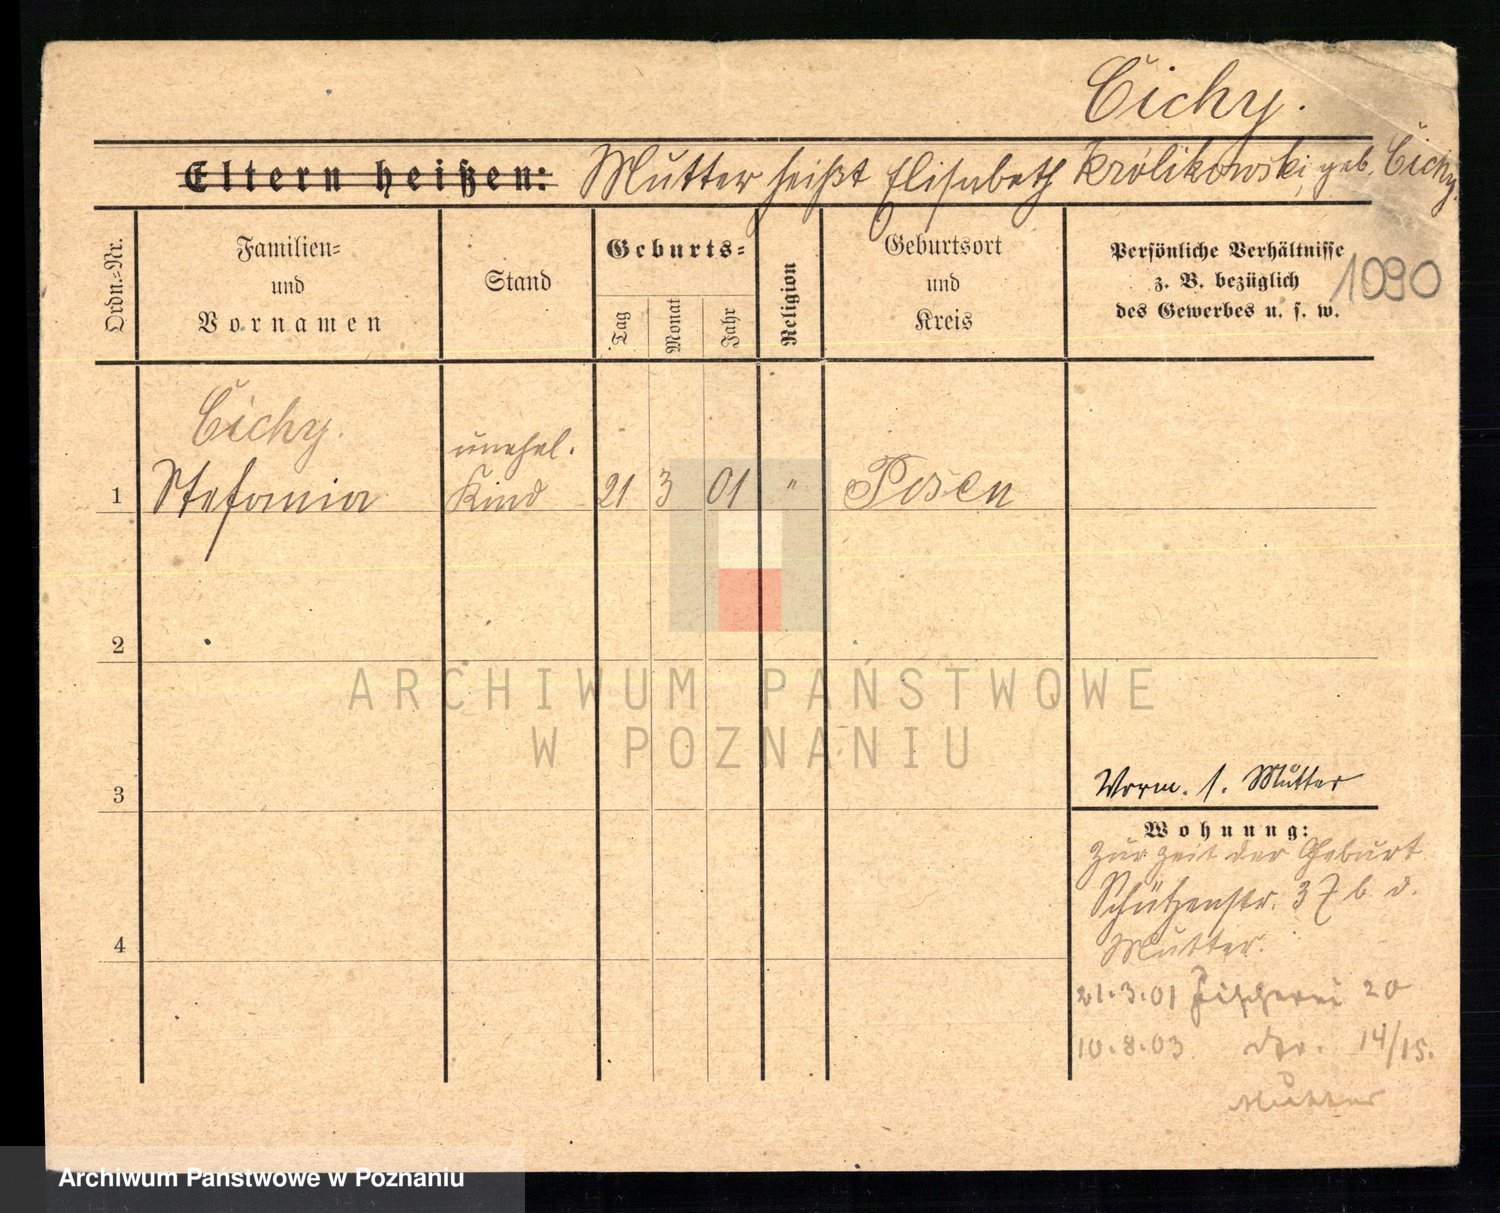 Cichy.
Eltern heißen: Mutter heißt Elisabeth Królikowski, geb. Cichy.
Ordn.=Nr.
Familien=
und
Vornamen
Stand
Geburts=
Tag
Monat
Jahr
Religion
Geburtsort
und
Kreis
Persönliche Verhältnisse
z. B. bezüglich
des Gewerbes u. s. w.
1090
Cichy.
unehel.
1 Stefania Kind 21 3 01 " Posen
2
3
Vorm. s. Mutter
Wohnung:
Zur Zeit der Geburt
Schützenstr. 37 b. d.
Mutter.
4
21.3.01 Fischerei 20
10.8.03 14/15.
Mutter
ARCHIWUM PAŃSTWOWE
W POZNANIU
Archiwum Państwowe w Poznaniu